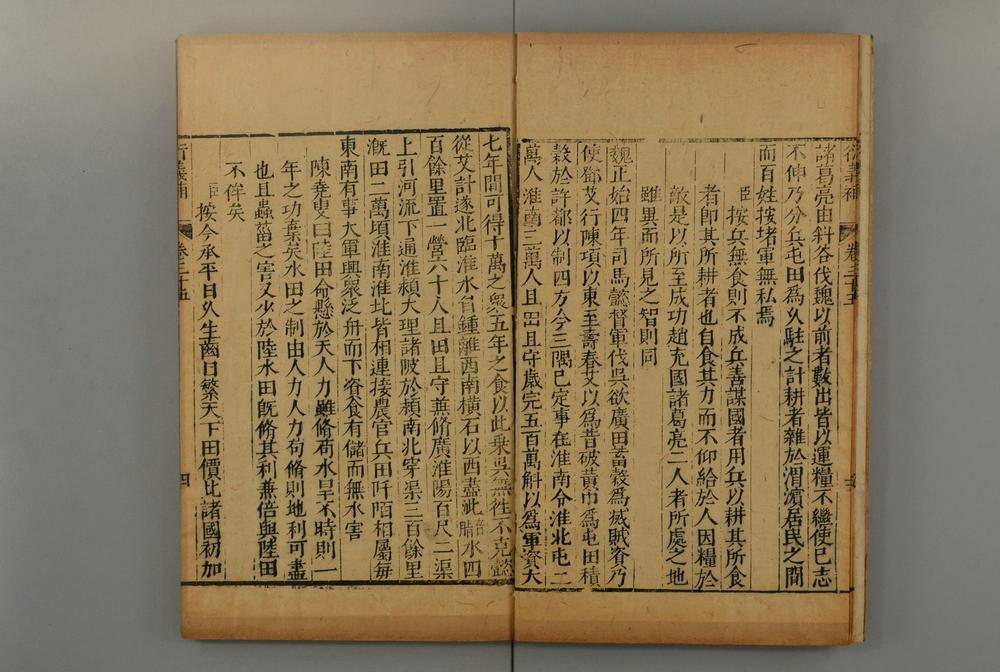 諸葛亮由斜谷伐魏以前者數出皆以運糧不繼使己志
不伸乃分兵屯田為久駐之計耕者雜於渭濱居民之間
而百姓按堵軍無私焉
臣按兵無食則不成兵善謀國者用兵以耕其所食
者即其所耕者也自食其力而不仰給於人因糧於
敵是以所至成功趙充國諸葛亮二人者所處之地
雖異而所見之智則同
魏正始四年司馬懿督軍伐吳欲廣田蓄穀為滅賊資乃
使鄧艾行陳項以東至壽春艾以為昔破黃巾為屯田積
穀於許都以制四方今三隅已定事在淮南令淮北屯二
萬人淮南三萬人且田且守歲完五百萬斛以為軍資大
七年間可得十萬之眾五年之食以此乘吳無徃不克懿
從艾計遂北臨淮水自鍾離西南橫石以西盡泚水四
百餘里置一營六十人且田且守兼脩廣淮陽百尺二渠
上引河流下通淮潁大理諸陂於潁南北穿渠三百餘里
溉田二萬頃淮南淮北皆相連接農官兵田阡陌相屬每
東南有事大軍興眾泛舟而下資食有儲而無水害
陳堯叟曰陸田命懸於天人力雖脩苟水旱不時則一
年之功棄矣水田之制由人力人力苟脩則地利可盡
也且蟲菑之害又少於陸水田既脩其利兼倍與陸田
不侔矣
臣按今承平日久生齒日繁天下田價比諸國初加
衍義補
卷三十五
四